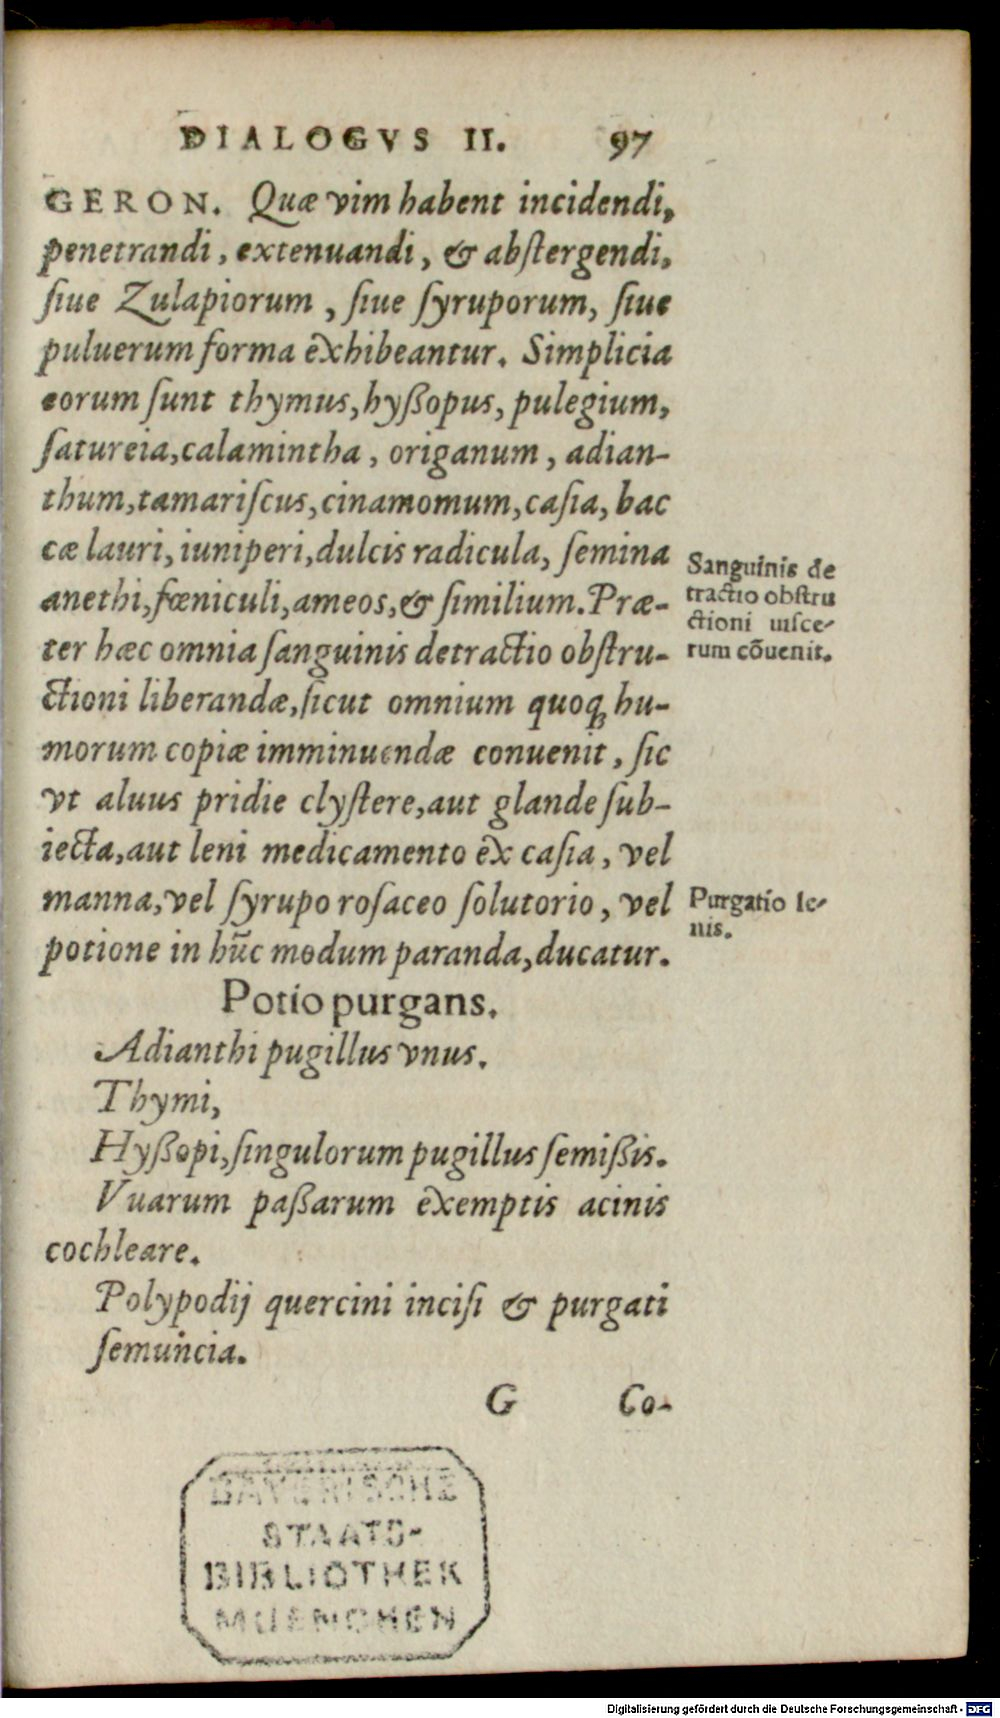 DIALOGVS II. 97
GERON. Quæ vim habent incidendi,
penetrandi, extenuandi, & abſtergendi,
ſiue Zulapiorum, ſiue ſyruporum, ſiue
puluerum forma exhibeantur. Simplicia
eorum ſunt thymus, hyßopus, pulegium,
ſatureia, calamintha, origanum, adian-
thum, tamariſcus, cinamomum, caſia, bac
cæ lauri, iuniperi, dulcis radicula, ſemina
anethi, fœniculi, ameos, & ſimilium. Præ-
ter hæc omnia ſanguinis detractio obſtru-
ctioni liberandæ, ſicut omnium quoqꝫ hu-
morum copiæ imminuendæ conuenit, ſic
vt aluus pridie clyſtere, aut glande ſub-
iecta, aut leni medicamento ex caſia, vel
manna, vel ſyrupo roſaceo ſolutorio, vel
potione in hūc modum paranda, ducatur.
Sanguinis de
tractio obſtru
ctioni uiſce-
rum cõuenit.
Purgatio le-
nis.
Potio purgans.
Adianthi pugillus vnus.
Thymi,
Hyßopi, ſingulorum pugillus ſemißis.
Vuarum paßarum exemptis acinis
cochleare.
Polypodij quercini inciſi & purgati
ſemuncia.
G Co-
BAYERISCHE
STAATS-
BIBLIOTHEK
MUENCHEN
Digitalisierung gefördert durch die Deutsche Forschungsgemeinschaft - DFG